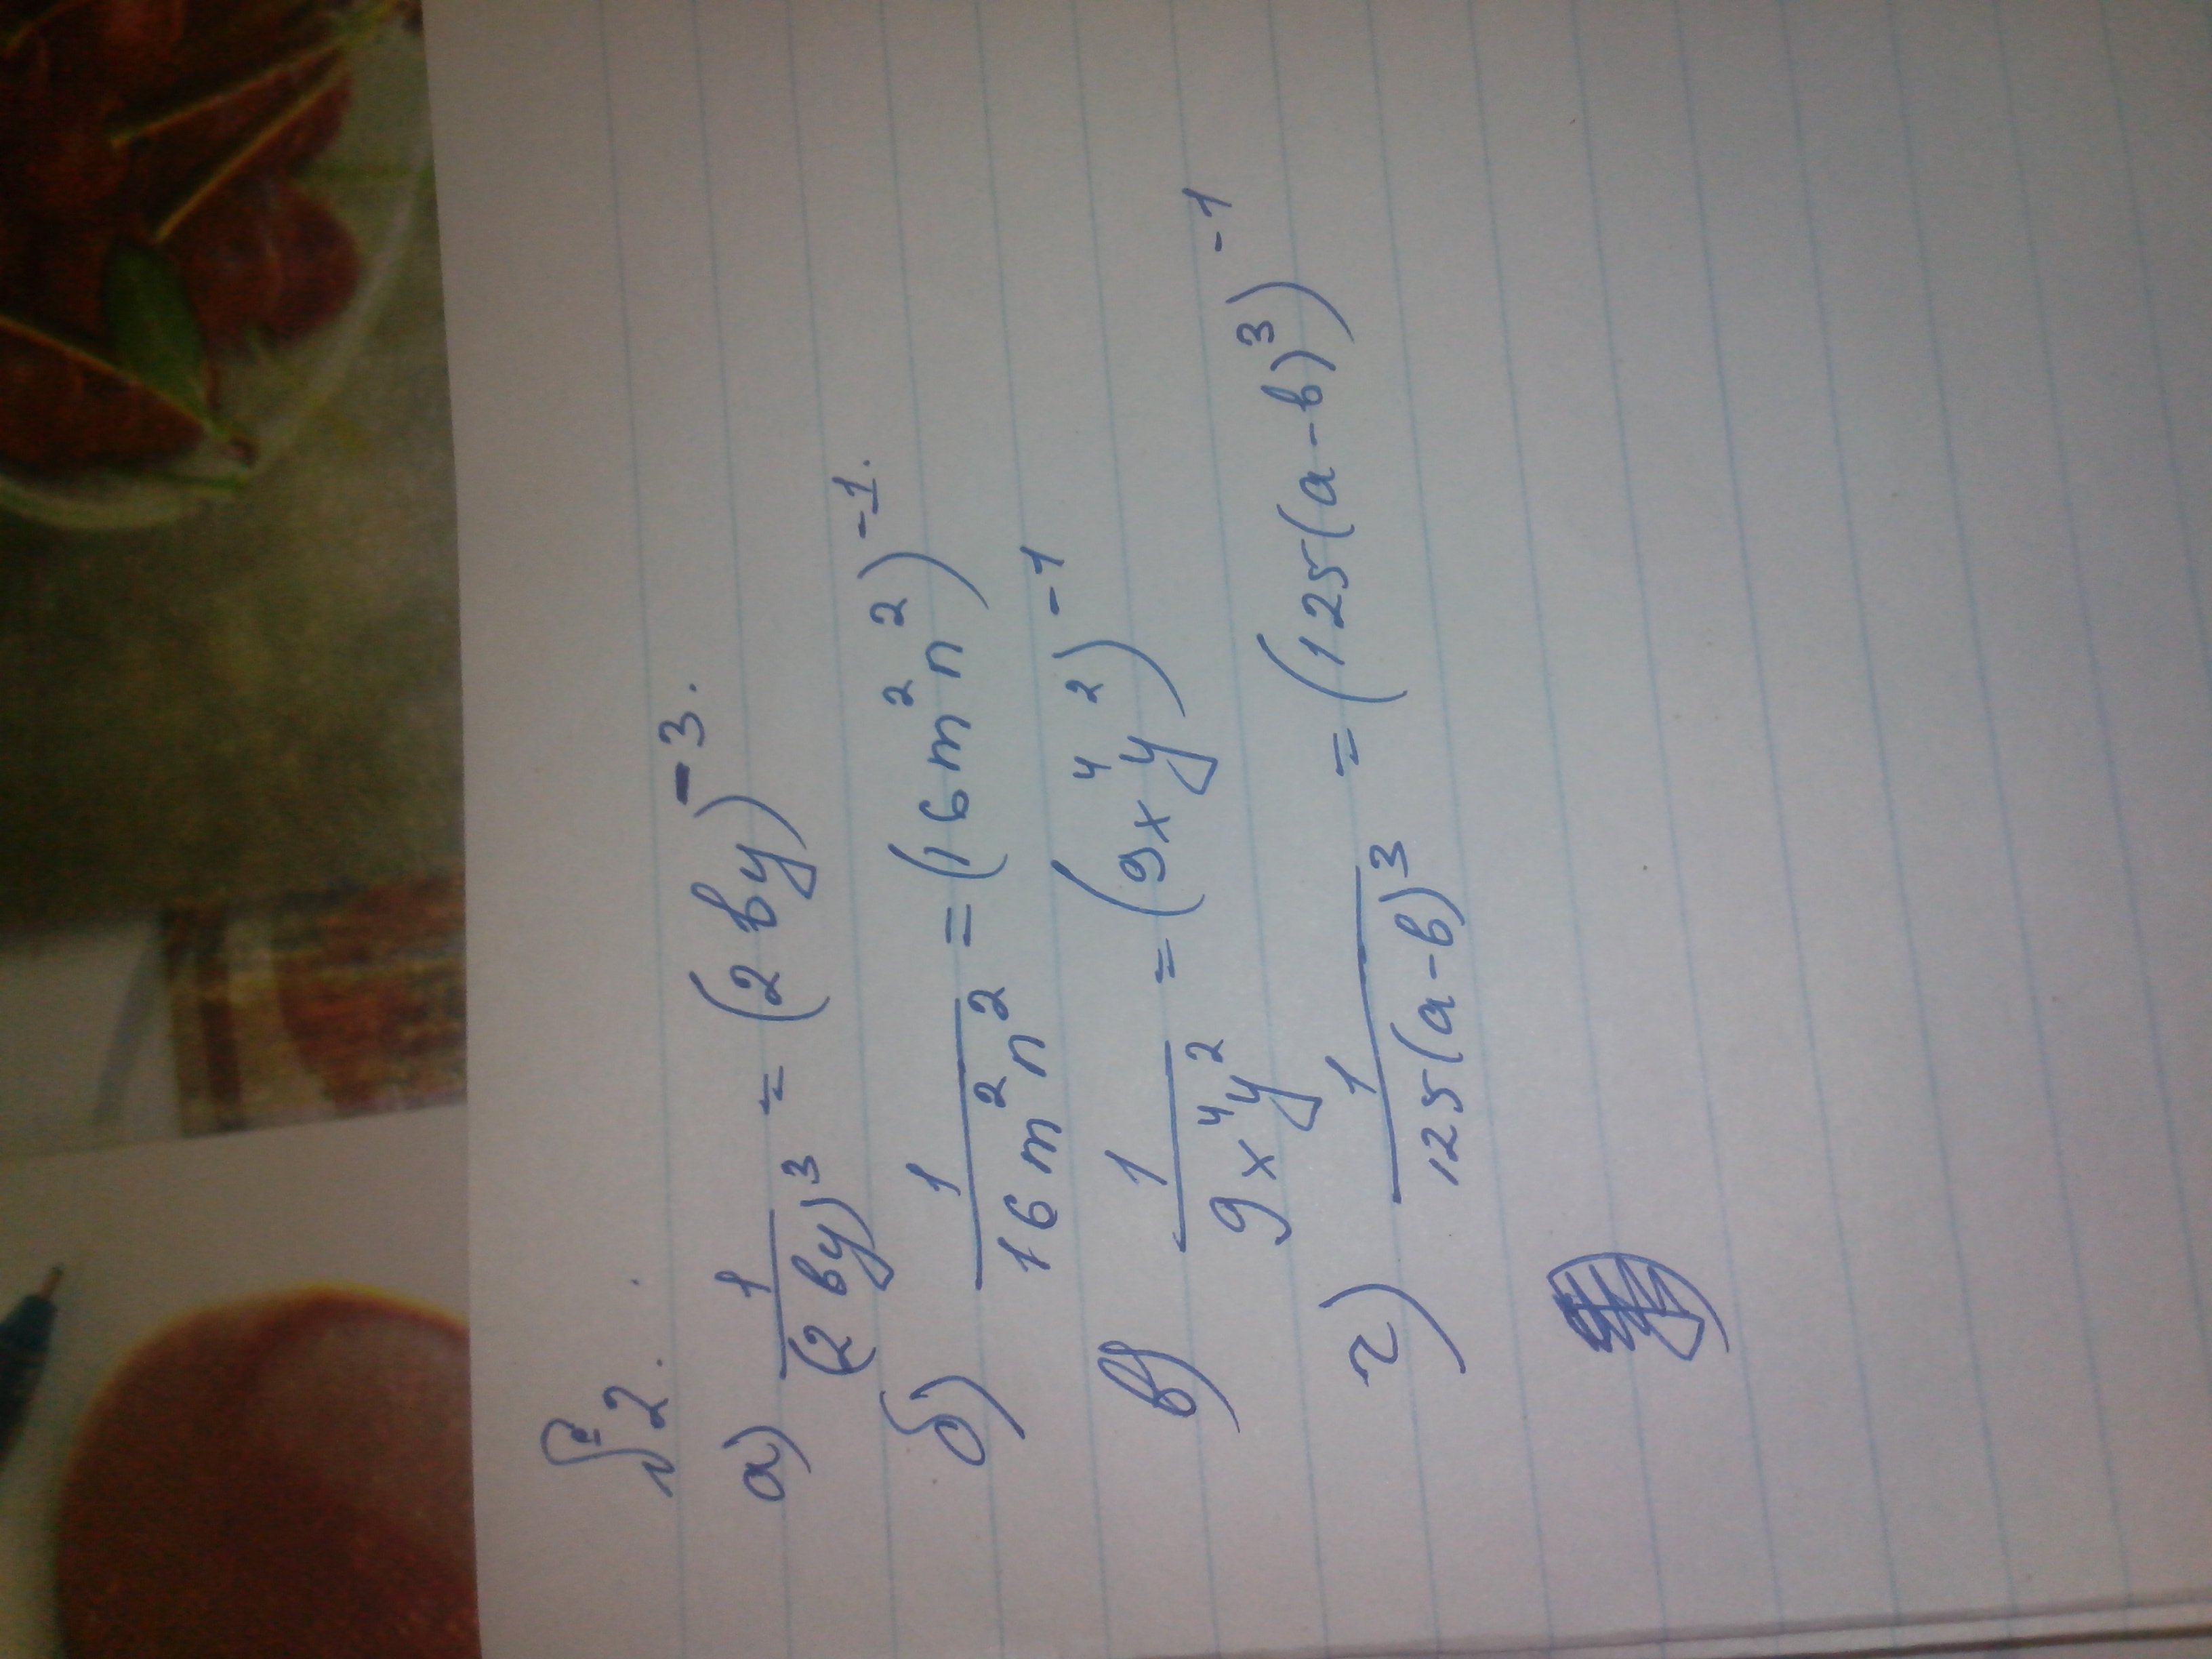 №2.
а) 1/(2ву)³ = (2ву)⁻³.
б) 1/16m²n² = (16m²n²)⁻¹.
в) 1/9x⁴y² = (9x⁴y²)⁻¹
г) 1/125(a-b)³ = (125(a-b)³)⁻¹